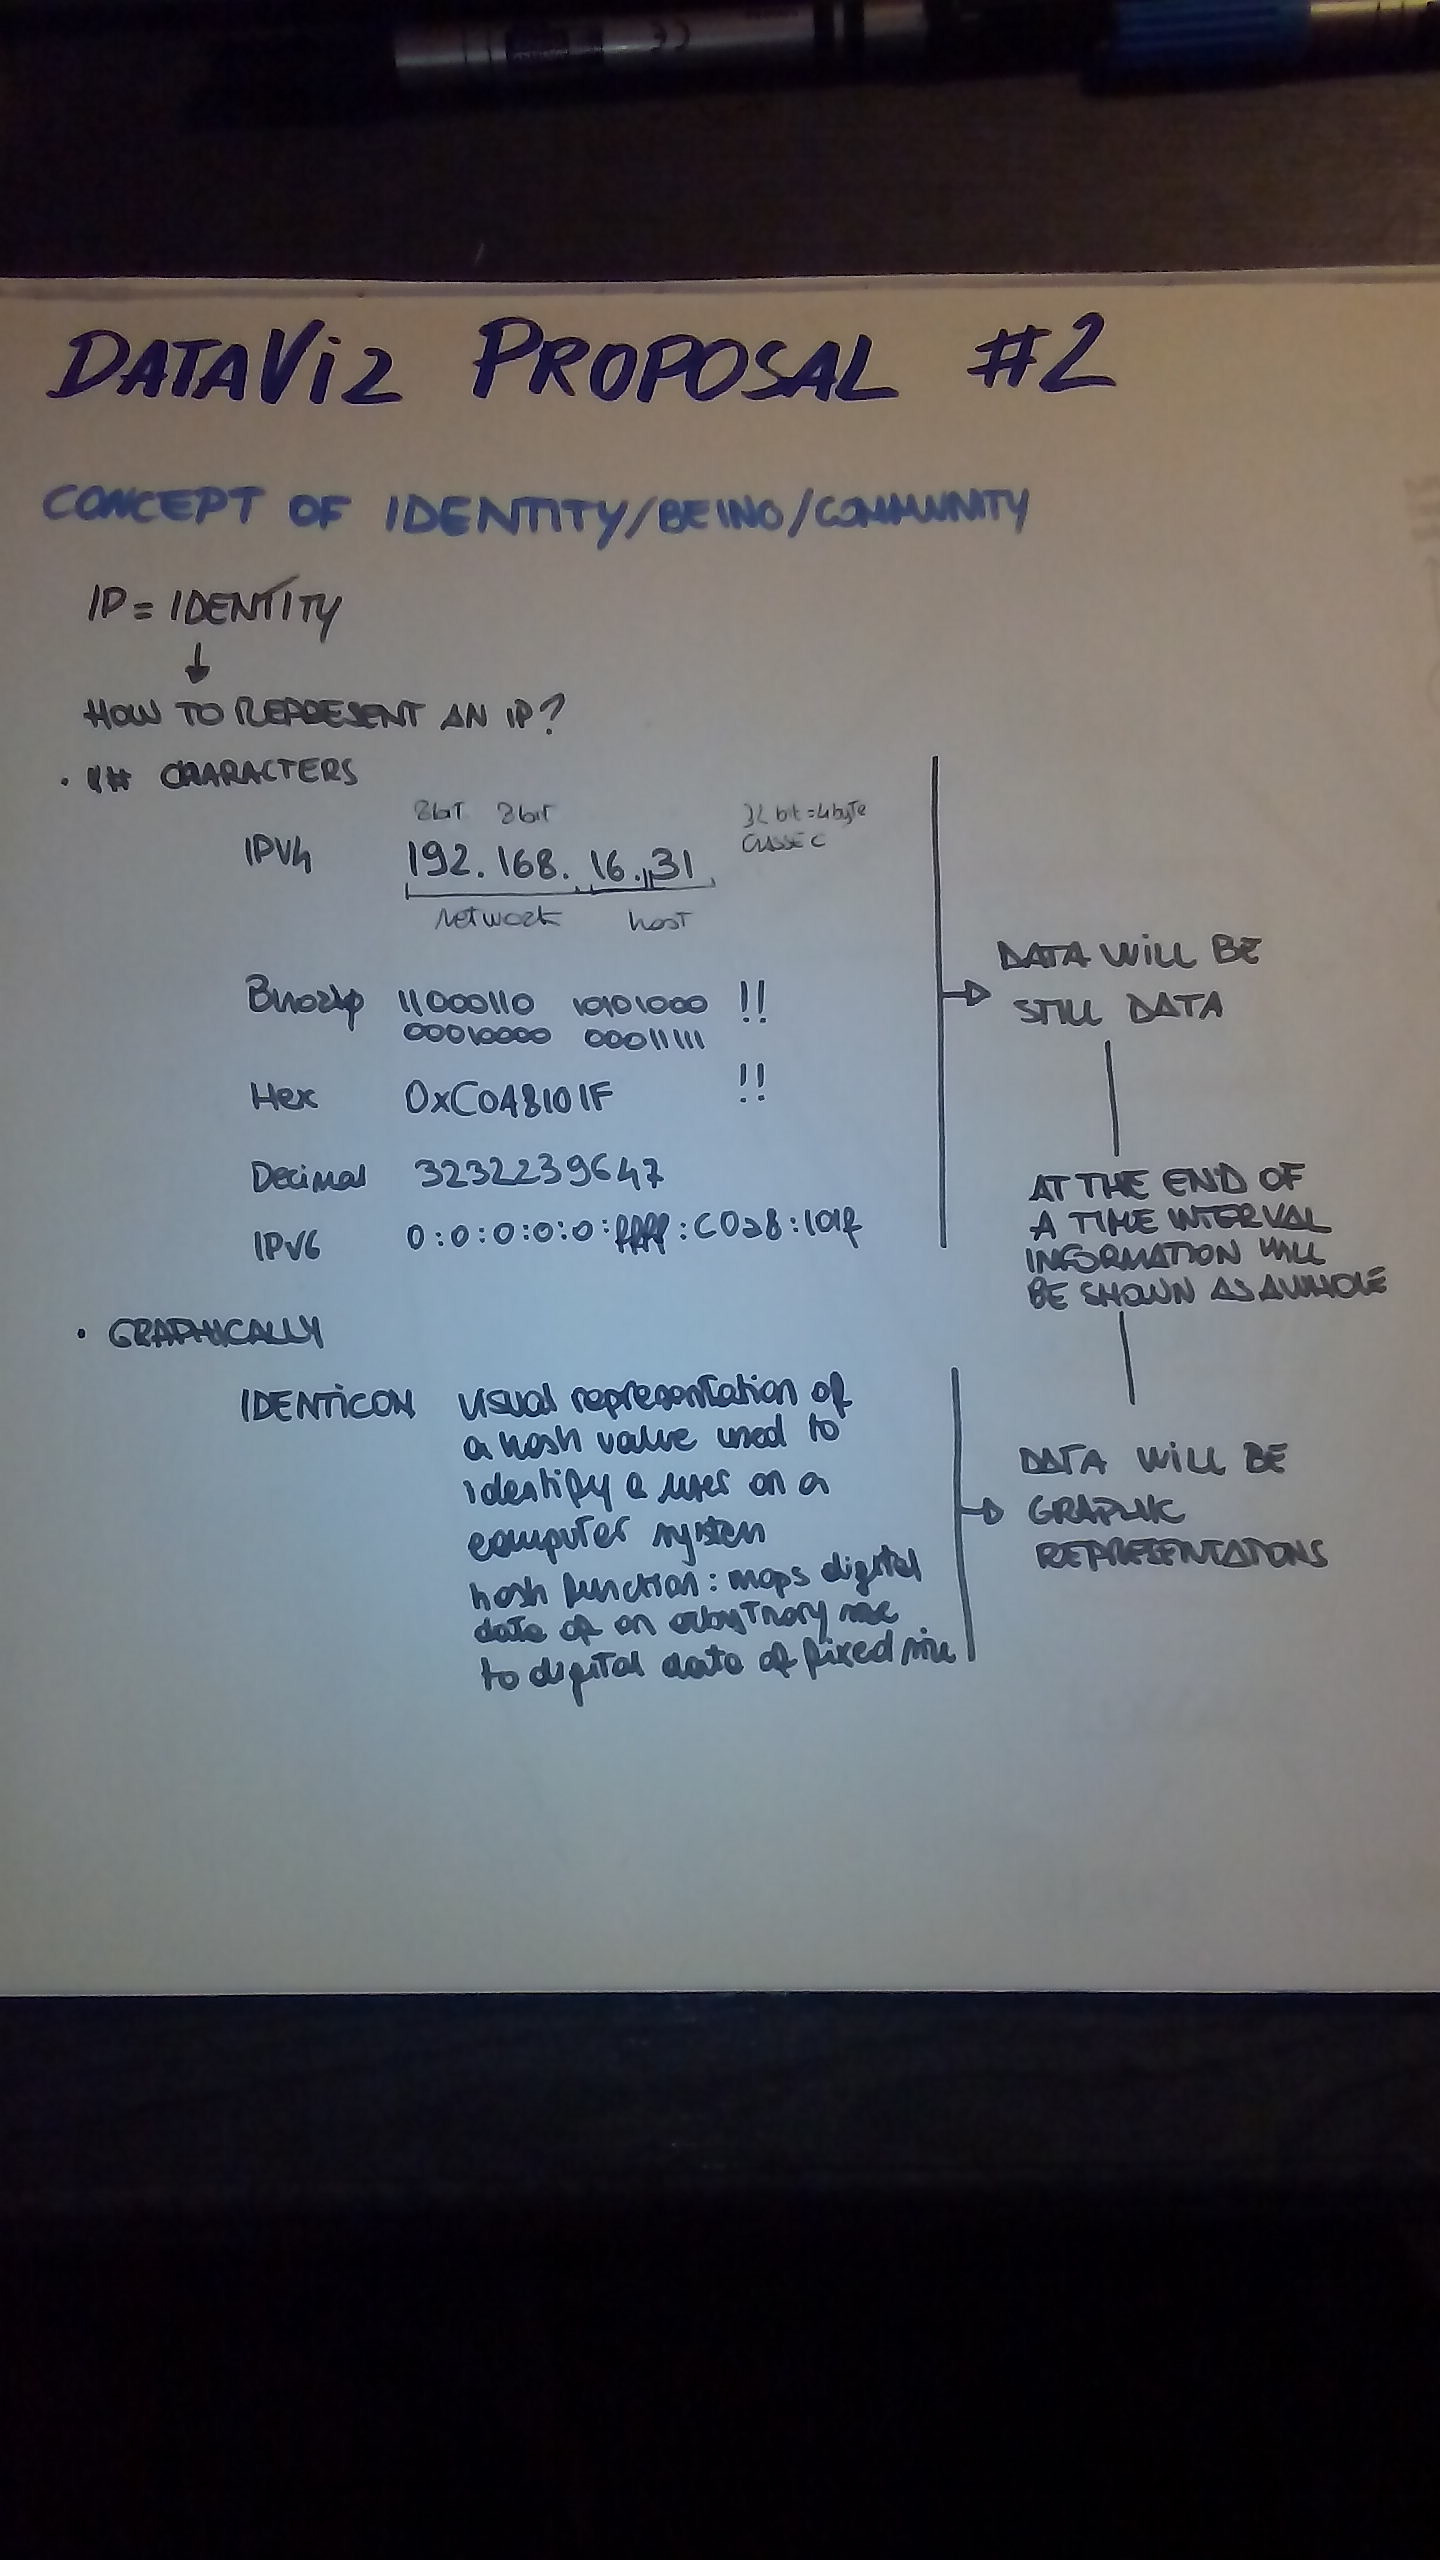 CE
DATAViz PROPOSAL #2
CONCEPT OF IDENTITY/BEING/COMMUNITY
IP = IDENTITY
↓
HOW TO REPRESENT AN IP?
• CHARACTERS
8bit 8bit
32 bit = 4 byte
CLASSE C
IPV4 192.168.16.31
network host
Binary 11000110 10101000 !!
00010000 00011111
Hex 0xC0A8101F !!
Decimal 3232239647
IPV6 0:0:0:0:0:ffff:C0a8:101f
DATA WILL BE
STILL DATA
AT THE END OF
A TIME INTERVAL
INFORMATION WILL
BE SHOWN AS A WHOLE
• GRAPHICALLY
IDENTICON visual representation of
a hash value used to
identify a user on a
computer system
hash function: maps digital
data of an arbytrary size
to digital data of fixed size
DATA WILL BE
GRAPHIC
REPRESENTATIONS